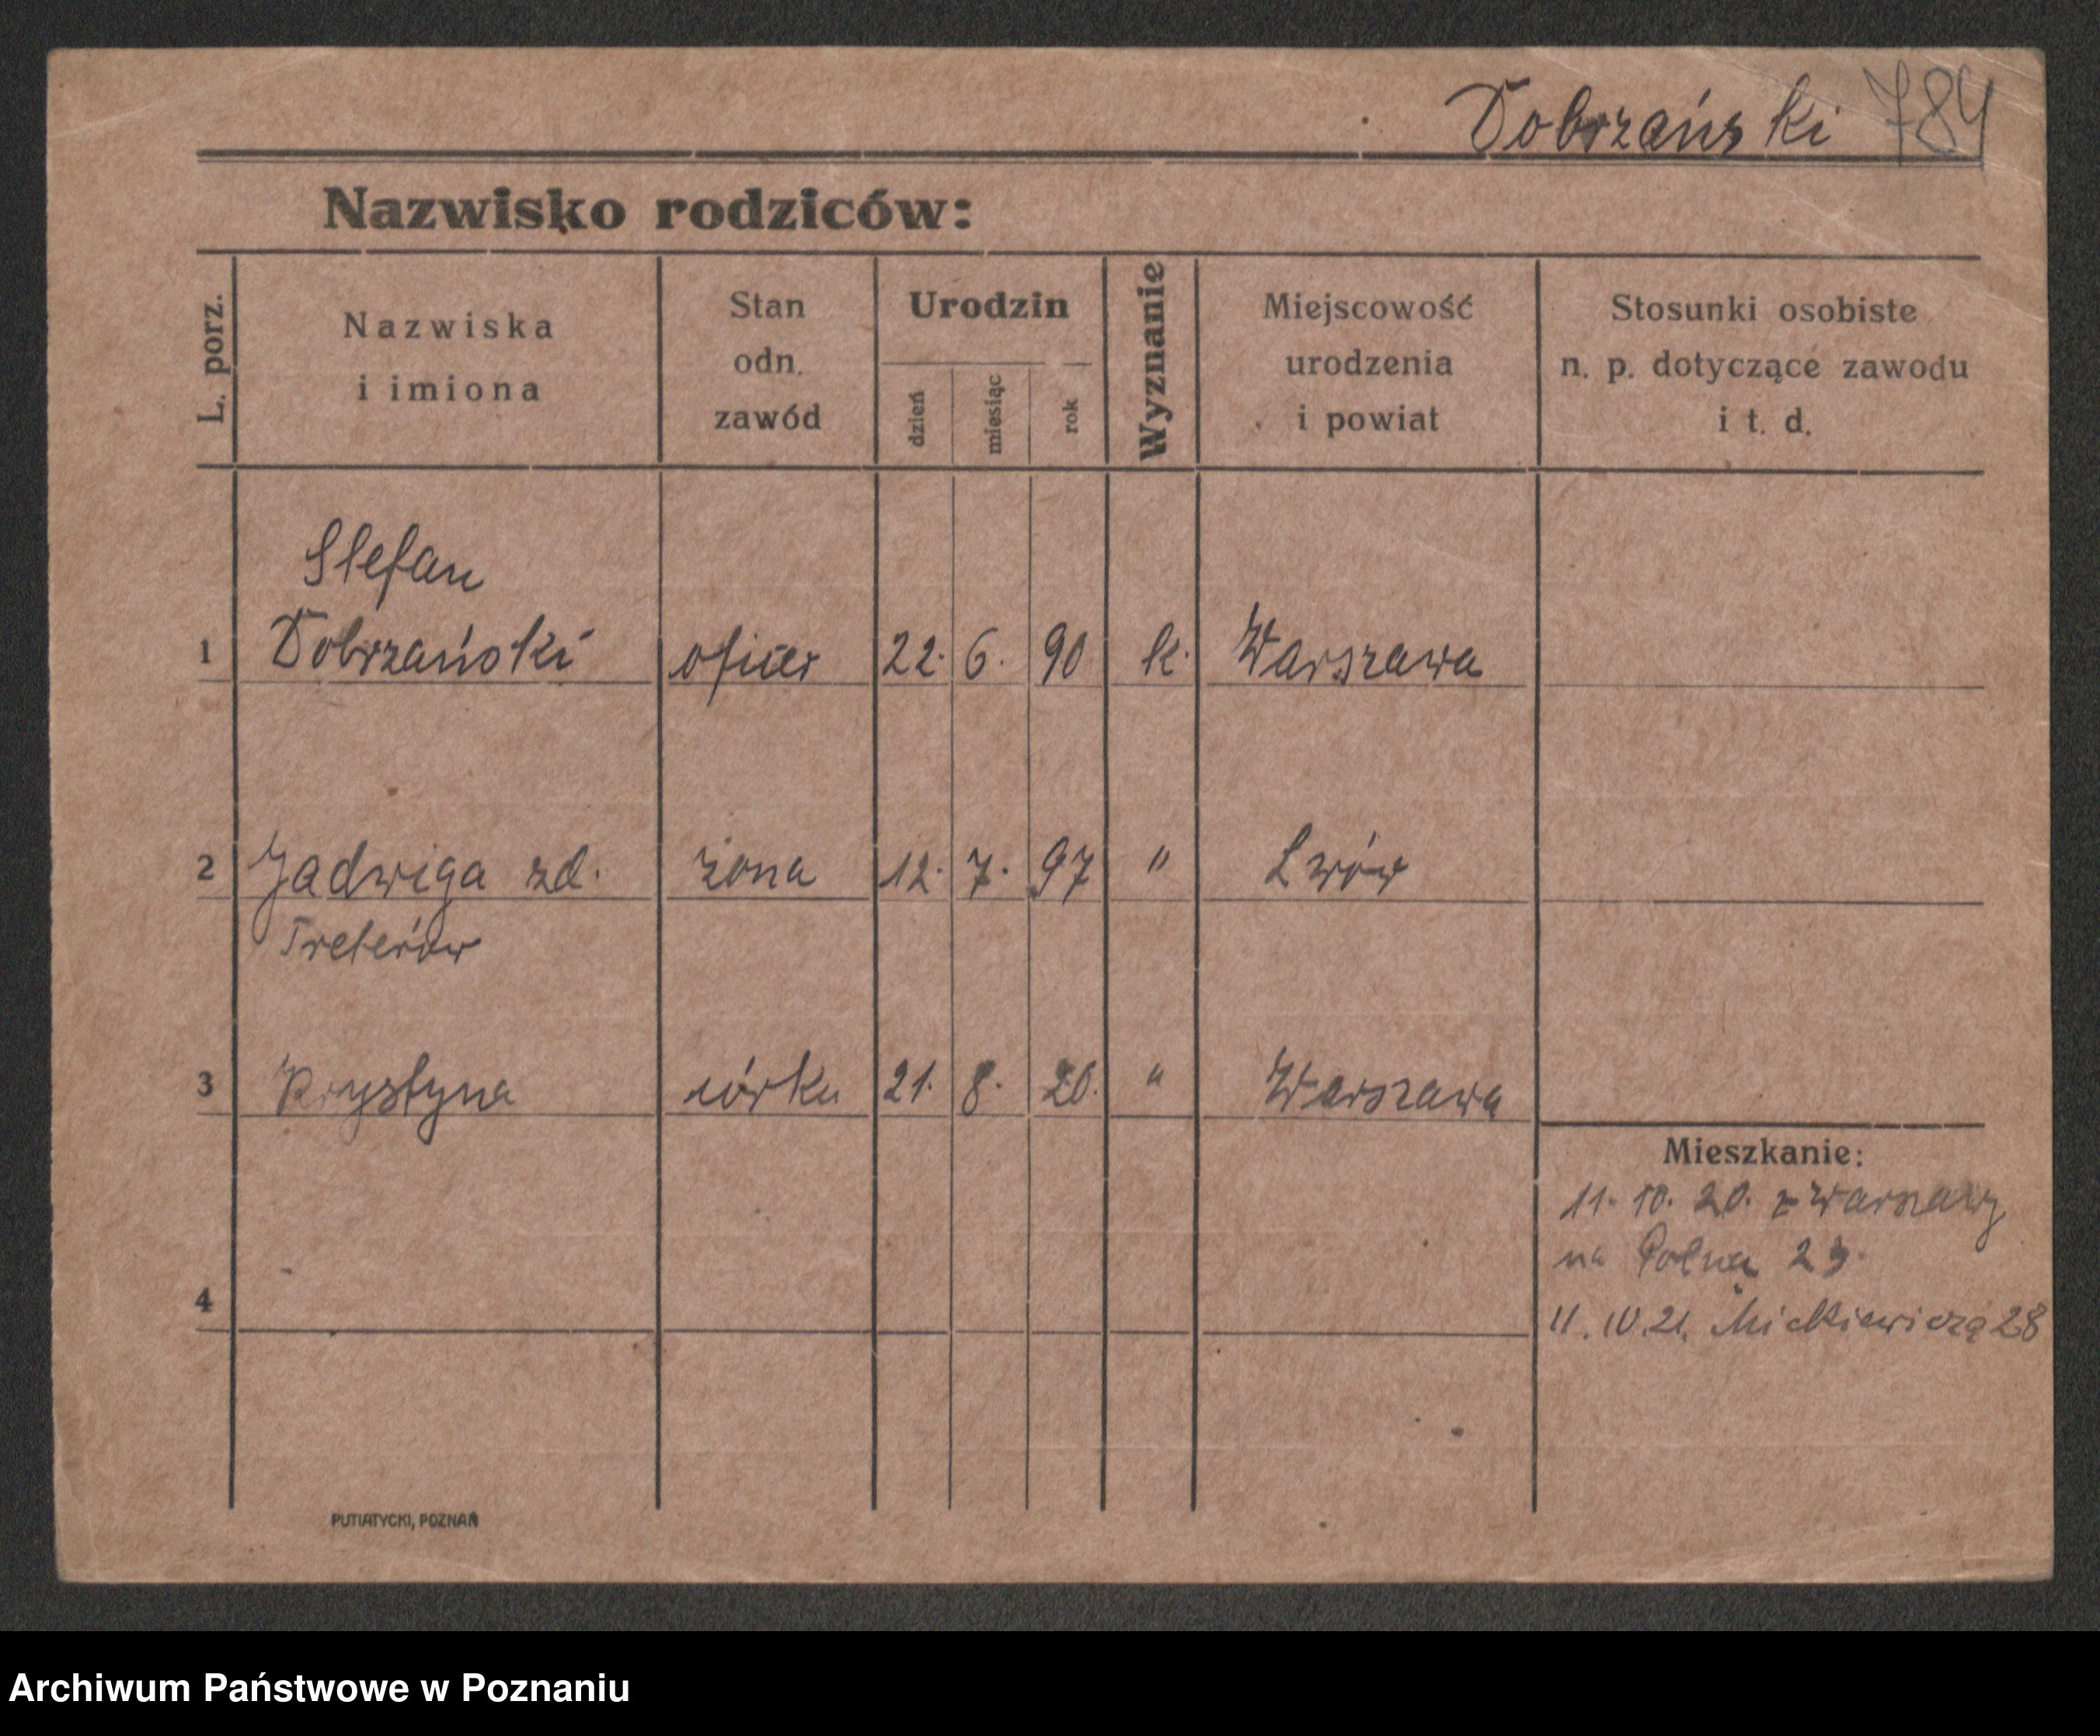 Dobrzański 784
Nazwisko rodziców:
L. porz.
Nazwiska
i imiona
Stan
odn.
zawód
Urodzin
dzień
miesiąc
rok
Wyznanie
Miejscowość
urodzenia
i powiat
Stosunki osobiste
n. p. dotyczące zawodu
i t. d.
Stefan
1 Dobrzański oficer 22. 6. 90 k. Warszawa
2 Jadwiga zd. żona 12. 7. 97 " Lwów
Treterów
3 Krystyna córka 21. 8. 20. " Warszawa
Mieszkanie:
11. 10. 20. z Warszawy
na Polną
4
11. IV. 21. Mickiewicza 28
PUTIATYCKI, POZNAŃ
Archiwum Państwowe w Poznaniu